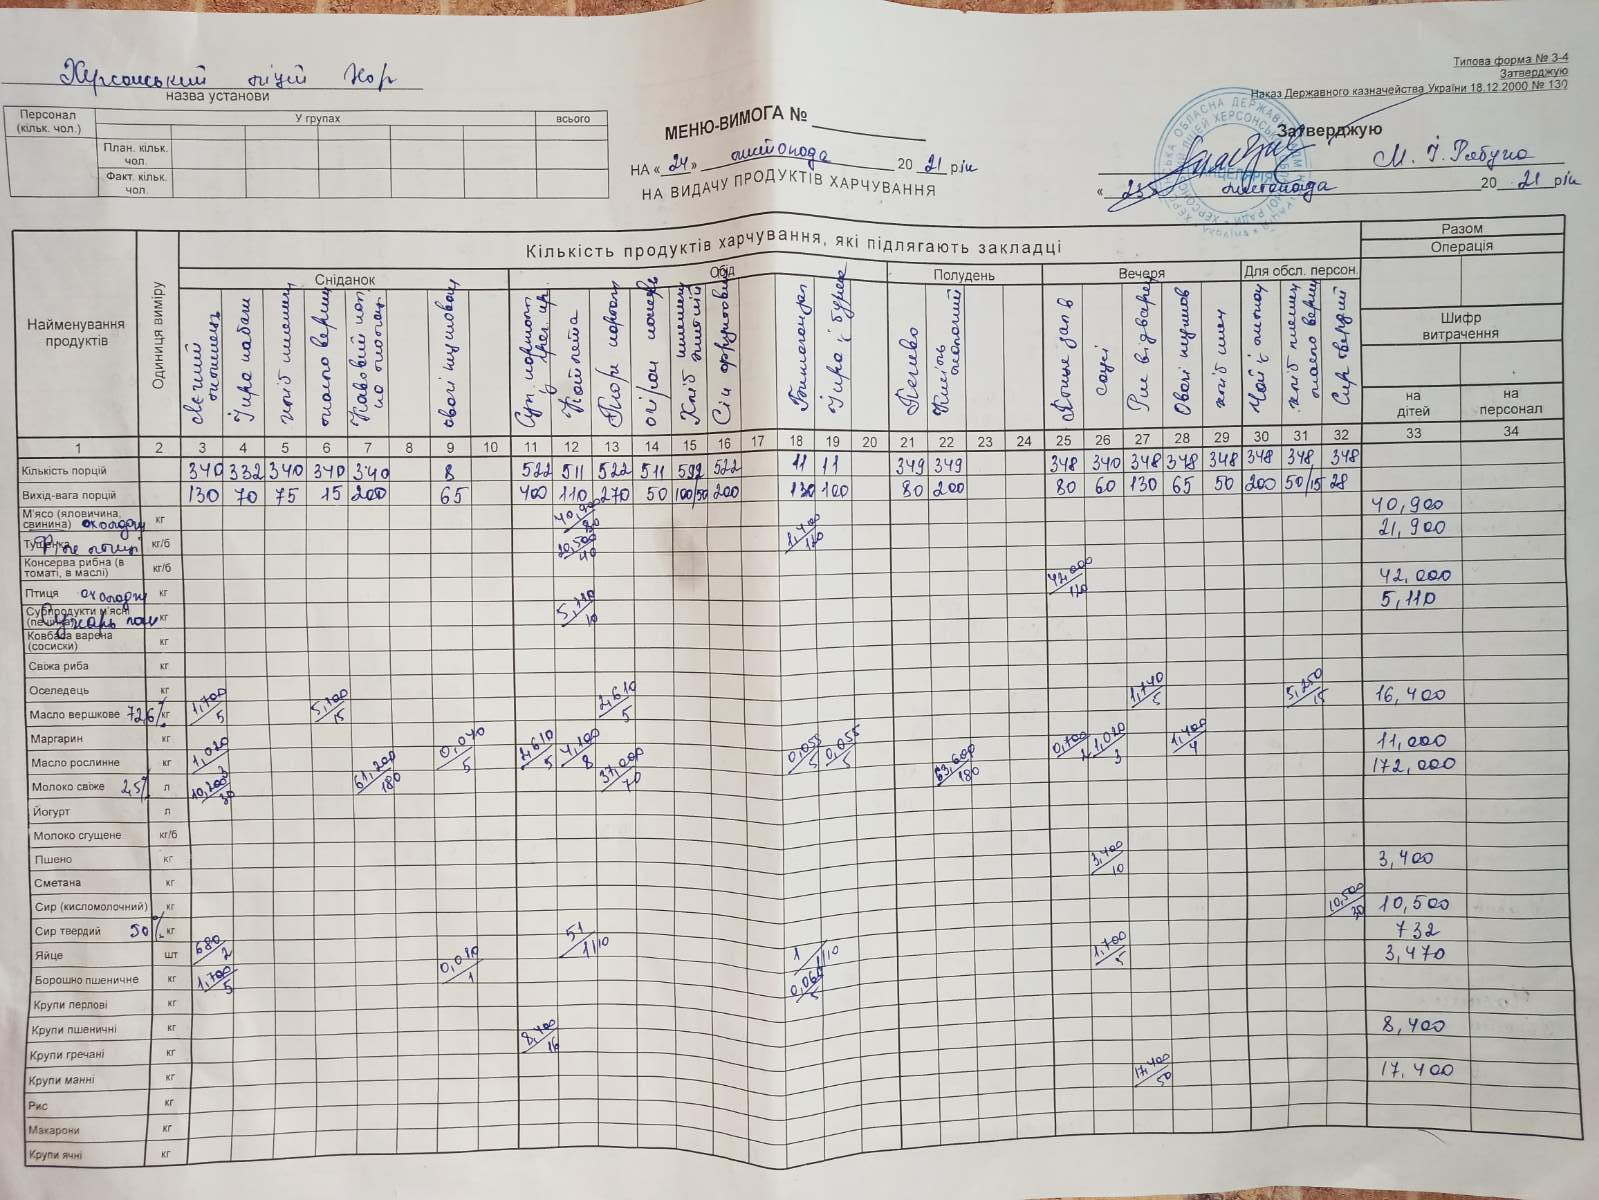 Типова форма № З-4
Затверджую
Наказ Державного казначейства України 18.12 2000 № 130
Херсонський ліцей
назва установи
Персонал (кільк. чол.)
У групах
всього
План. кільк. чол.
Факт. кільк. чол.
МЕНЮ-ВИМОГА №
НА « 24 » листопада 20 21 рік
НА ВИДАЧУ ПРОДУКТІВ ХАРЧУВАННЯ
Затверджую
М. І. Рябуха
« 23 » листопада 20 21 рік
Найменування продуктів
Одиниця виміру
Кількість продуктів харчування, які підлягають закладці
Разом
Операція
Шифр витрачення
на дітей
на персонал
Сніданок
Обід
Полудень
Вечеря
Для обсл. персон.
Ікра кабач
масло верш
овочі
Суп
Котлета
Пюре
огірок
Хліб
Сік фруктовий
Ікра
Печиво
соус
Рис відварений
Овочі
хліб
Чай
масло верш
Сир твердий
1 2 3 4 5 6 7 8 9 10 11 12 13 14 15 16 17 18 19 20 21 22 23 24 25 26 27 28 29 30 31 32 33 34
Кількість порцій 340 332 340 340 340 8 522 511 522 511 522 522 11 11 349 349 348 340 348 348 348 348 348 348
Вихід-вага порцій 130 70 75 15 200 65 400 110 270 50 100/50 200 130 100 80 200 80 60 130 65 50 200 50/15 28
М'ясо (яловичина, свинина) охолодж кг 40,900/80 40,900
Тушенка кг/б 20,500/40 1,400/120 21,900
Консерва рибна (в томаті, в маслі) кг/б
Птиця охолодж кг 42,000/120 42,000
Субпродукти м'ясні (печінка) кг 5,110/10 5,110
Ковбаса варена (сосиски) кг
Свіжа риба кг
Оселедець кг
Масло вершкове 72,6% кг 1,700/5 5,100/15 2,610/5 1,740/5 5,250/15 16,400
Маргарин кг
Масло рослинне кг 1,020 0,040/5 2,610/5 4,100/8 0,055/5 0,055/5 0,700/2 1,020/3 1,400/4 11,000
Молоко свіже 2,5% л 10,200/30 61,200/180 37,000/70 63,600/180 172,000
Йогурт л
Молоко сгущене кг/б
Пшено кг
Сметана кг 3,400/10 3,400
Сир (кисломолочний) кг
Сир твердий 50% кг 10,500/30 10,500
Яйце шт 680/2 51/1/10 1/1/10 732
Борошно пшеничне кг 1,700/5 0,010/1 0,060/5 1,700/5 3,470
Крупи перлові кг
Крупи пшеничні кг
Крупи гречані кг 8,400/16 8,400
Крупи манні кг
Рис кг 17,400/50 17,400
Макарони кг
Крупи ячні кг